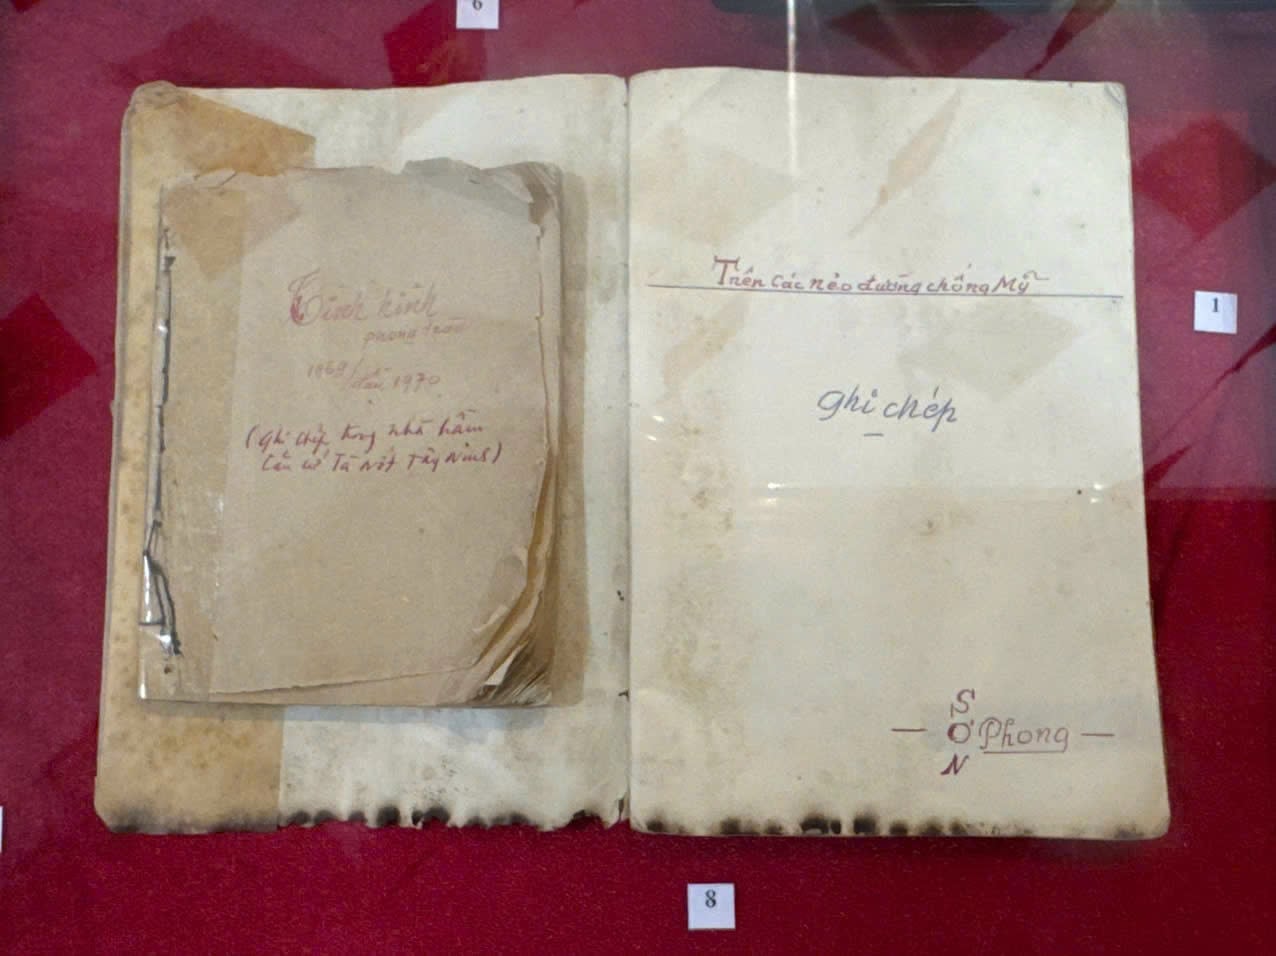 6
Tình hình
phong trào
1969/đầu 1970
(Ghi chép trong nhà hầm
Căn cứ Tà Nốt Tây Ninh)
Trên các nẻo đường chống Mỹ
ghi chép
S
Ơ Phong
N
1
8